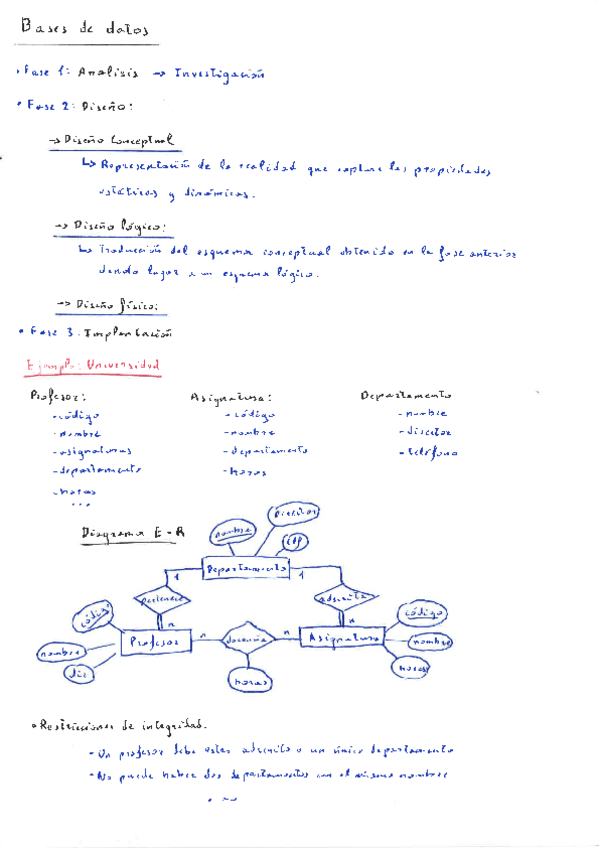 Bases de datos
• Fase 1: Analisis → Investigación
• Fase 2: Diseño:
→ Diseño Conceptual
↳ Representación de la realidad que capture las propiedades
estáticas y dinámicas.
→ Diseño lógico:
↳ Traducción del esquema conceptual obtenido en la fase anterior
dando lugar a un esquema lógico.
→ Diseño físico:
• Fase 3: Implantación
Ejemplo: Universidad
Profesor: Asignatura: Departamento
- código - código - nombre
- nombre - nombre - director
- asignaturas - departamento - teléfono
- departamento - horas
- horas
...
Diagrama E-R
Director
nombre
Departamento
1 1
pertenece adscrita
código n n código
Profesor n docencia n Asignatura
nombre nombre
dir horas horas
• Restricciones de integridad.
- Un profesor debe estar adscrito a un único departamento
- No puede haber dos departamentos con el mismo nombre